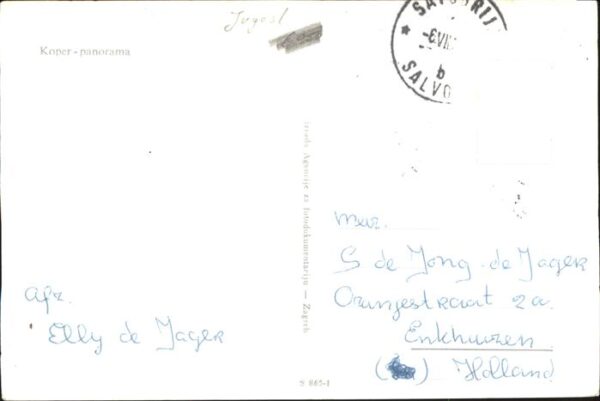 Jugosl
Koper - panorama
SAVUDRIJ
-6.VII.
b
SALVO
Izrada Agencije za fotodokumentaciju — Zagreb
Afz.
Elly de Jager
Mevr.
S de Jong - de Jager
Oranjestraat 2a.
Enkhuizen
Holland
S 865-1